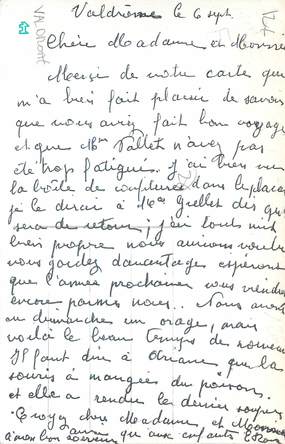 Valdrôme le 6 sept.
VALDROME
Chère Madame et Monsieur
Merci de votre carte qui
m'a bien fait plaisir de savoir
que vous aviez fait bon voyage
et que Mme Vallet n'avez pas
été trop fatiguée. J'ai bien vu
la boîte de confitures dans le placard
je le dirai à Mme Grellet dès qu'
sera de retour; j'ai tout mis
bien propre nous aurions voulu
vous gardez davantages espérons
que l'année prochaine vous viendrez
encore parmi nous. Nous avons
eu dimanche un orage, mais
voilà le beau temps de nouveau
Il faut dire à que la
souris à mangée du poison
et elle a rendu le dernier soupir
Croyez chère Madame et Monsieur
à mon bon souvenir qui aux enfants